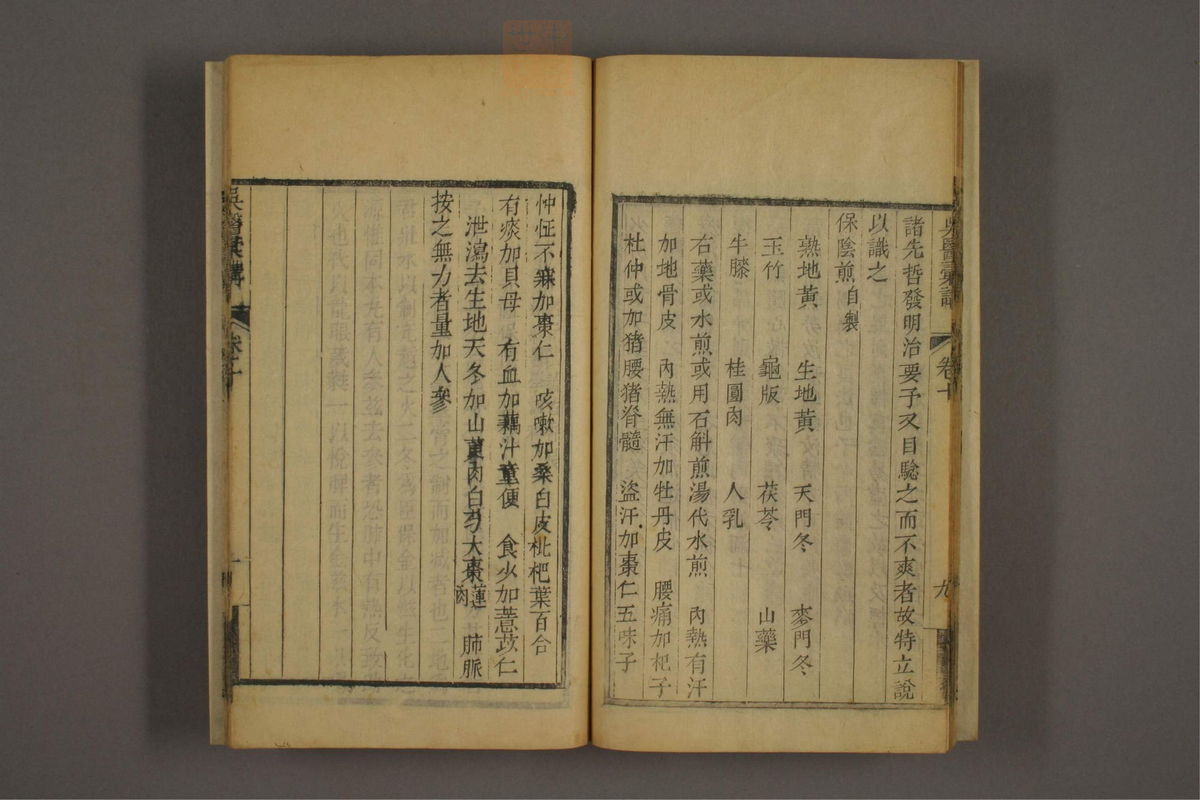 吳醫彙講 卷十 九
諸先哲發明治要予又目騐之而不爽者故特立說
以識之
保陰煎自製
熟地黃 生地黃 天門冬 麥門冬
玉竹 龜版 茯苓 山藥
牛膝 桂圓肉 人乳
右藥或水煎或用石斛煎湯代水煎 內熱有汗
加地骨皮 內熱無汗加牡丹皮 腰痛加杞子
杜仲或加猪腰猪脊髓 盜汗加棗仁五味子
怔不寐加棗仁 咳嗽加桑白皮枇杷葉百合
有痰加貝母 有血加藕汁童便 食少加薏苡仁
泄瀉去生地天冬加山萸肉白芍大棗蓮肉 肺脈
按之無力者量加人參
吳醫彙講